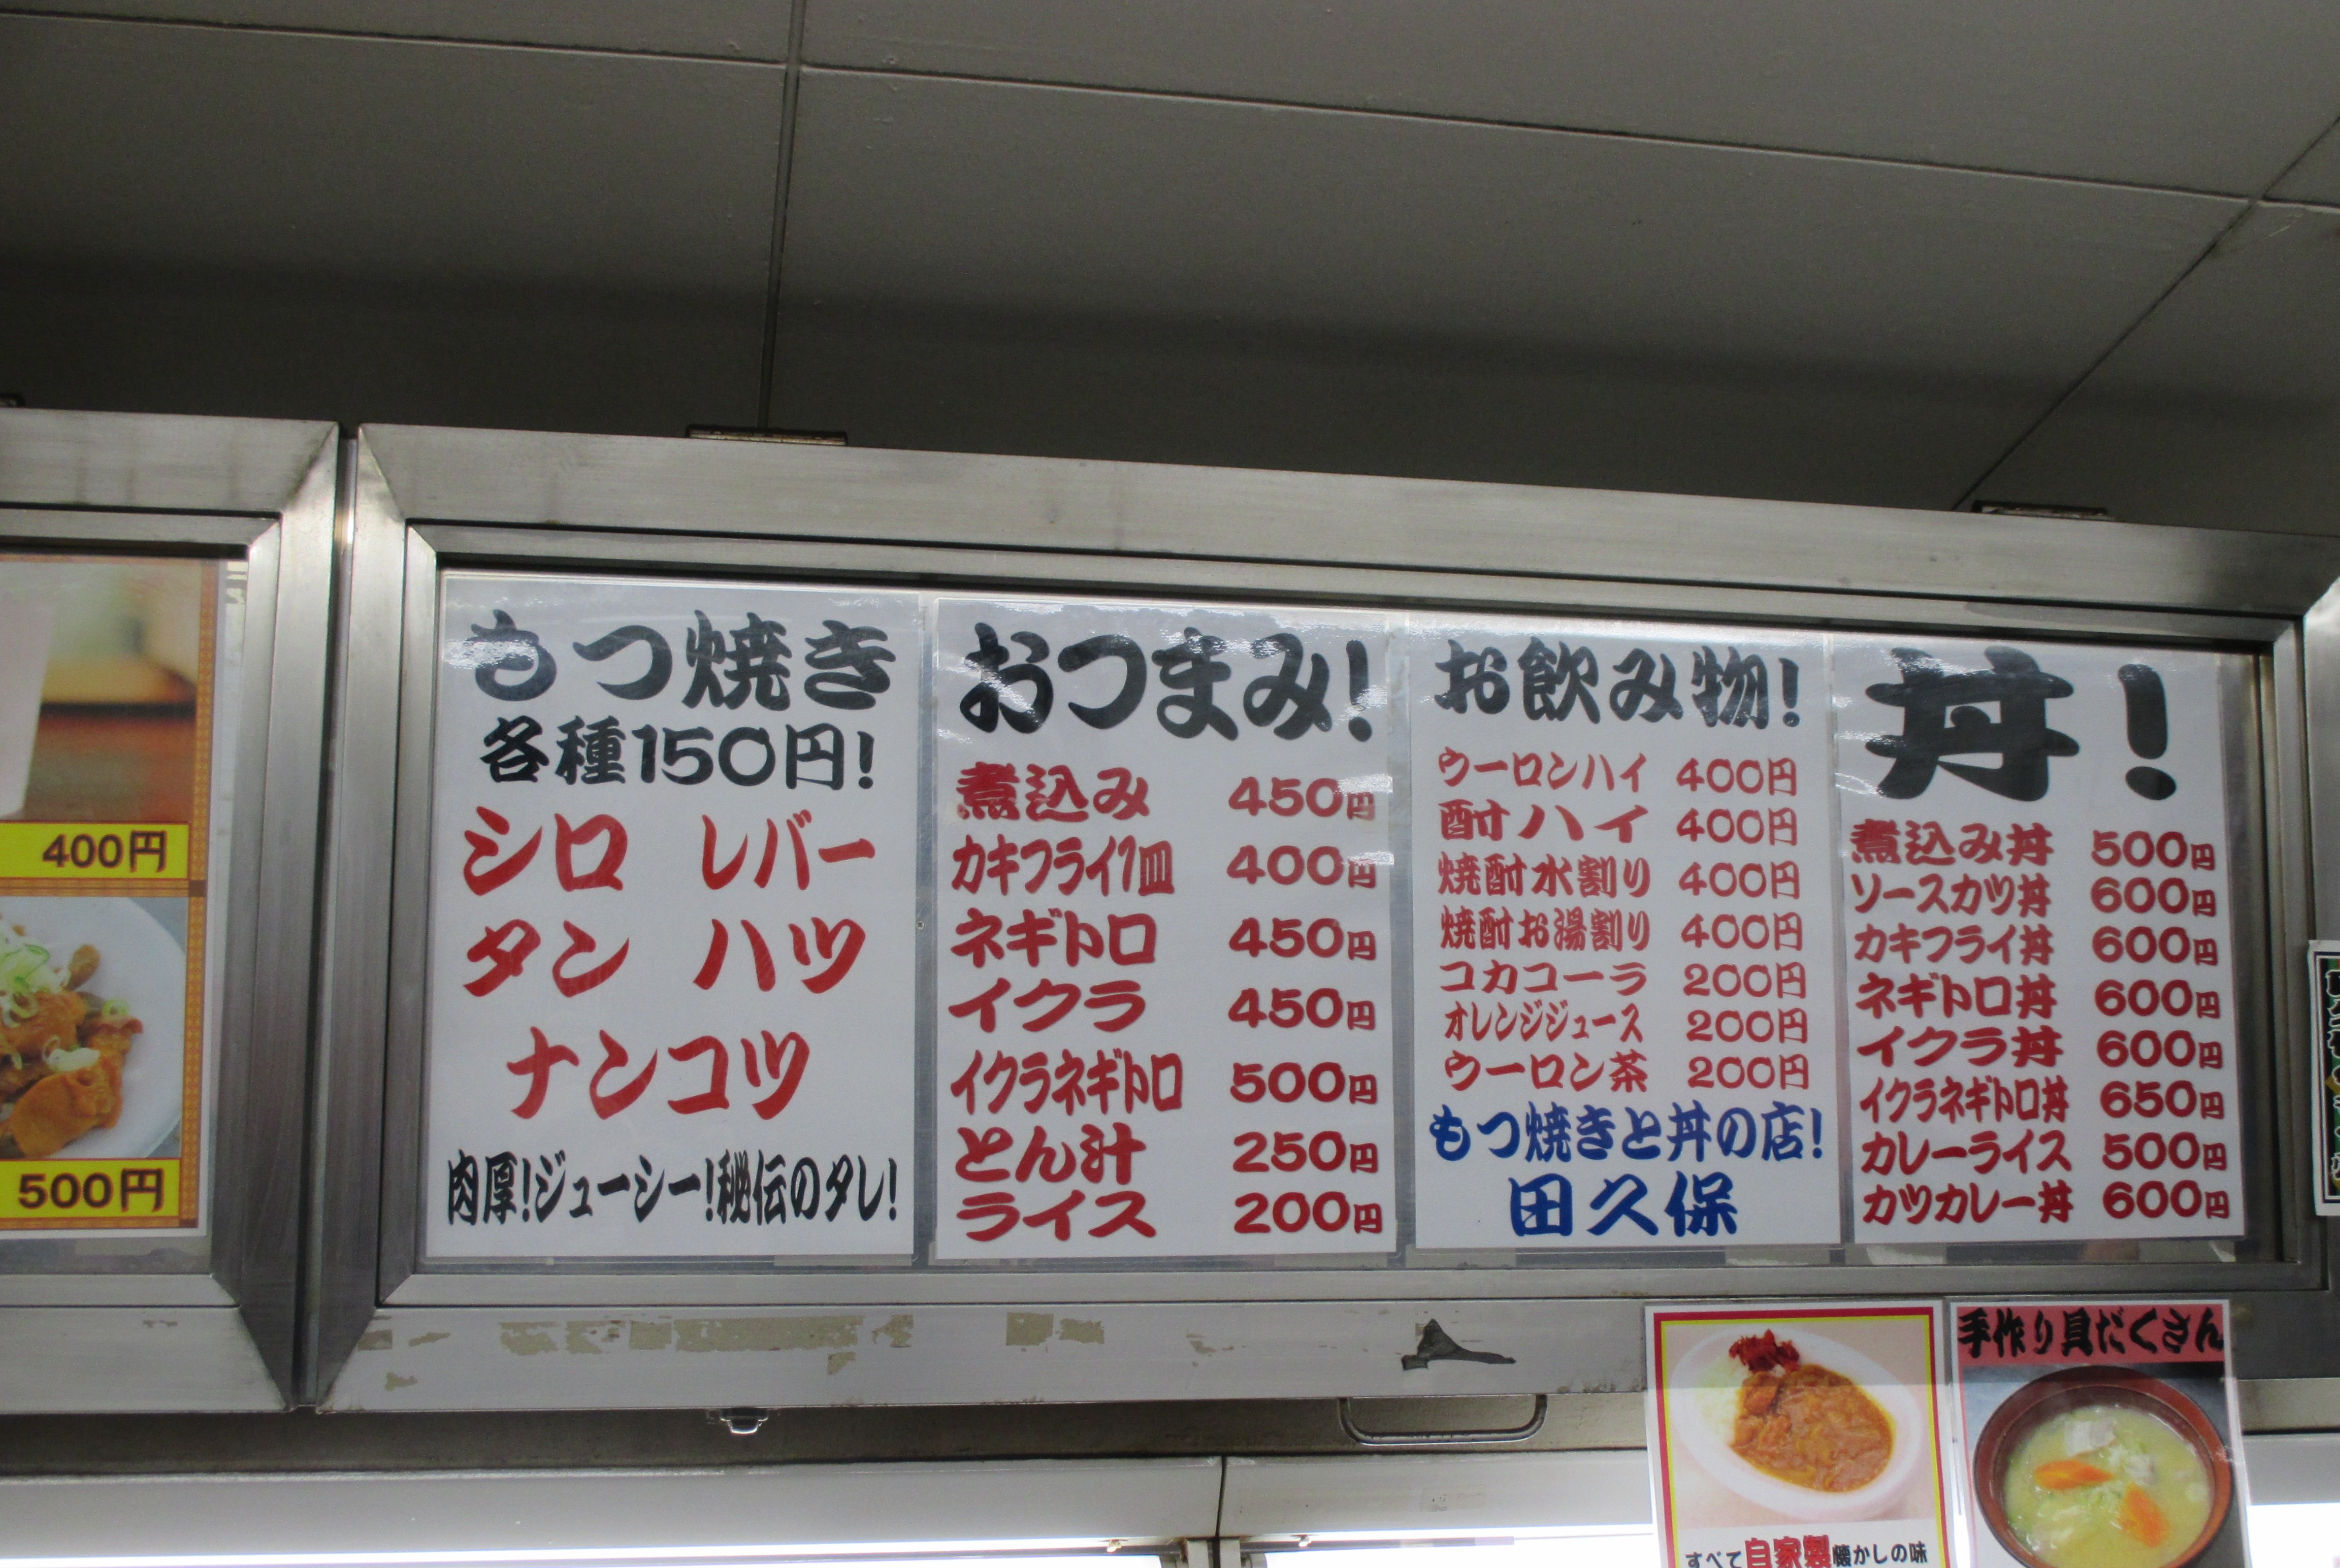 400円
500円
もつ焼き
各種150円!
シロ レバー
タン ハツ
ナンコツ
肉厚!ジューシー!秘伝のタレ!
おつまみ!
煮込み 450円
カキフライ1皿 400円
ネギトロ 450円
イクラ 450円
イクラネギトロ 500円
とん汁 250円
ライス 200円
お飲み物!
ウーロンハイ 400円
酎ハイ 400円
焼酎水割り 400円
焼酎お湯割り 400円
コカコーラ 200円
オレンジジュース 200円
ウーロン茶 200円
もつ焼きと丼の店!
田久保
丼!
煮込み丼 500円
ソースカツ丼 600円
カキフライ丼 600円
ネギトロ丼 600円
イクラ丼 600円
イクラネギトロ丼 650円
カレーライス 500円
カツカレー丼 600円
すべて自家製懐かしの味
手作り具だくさん